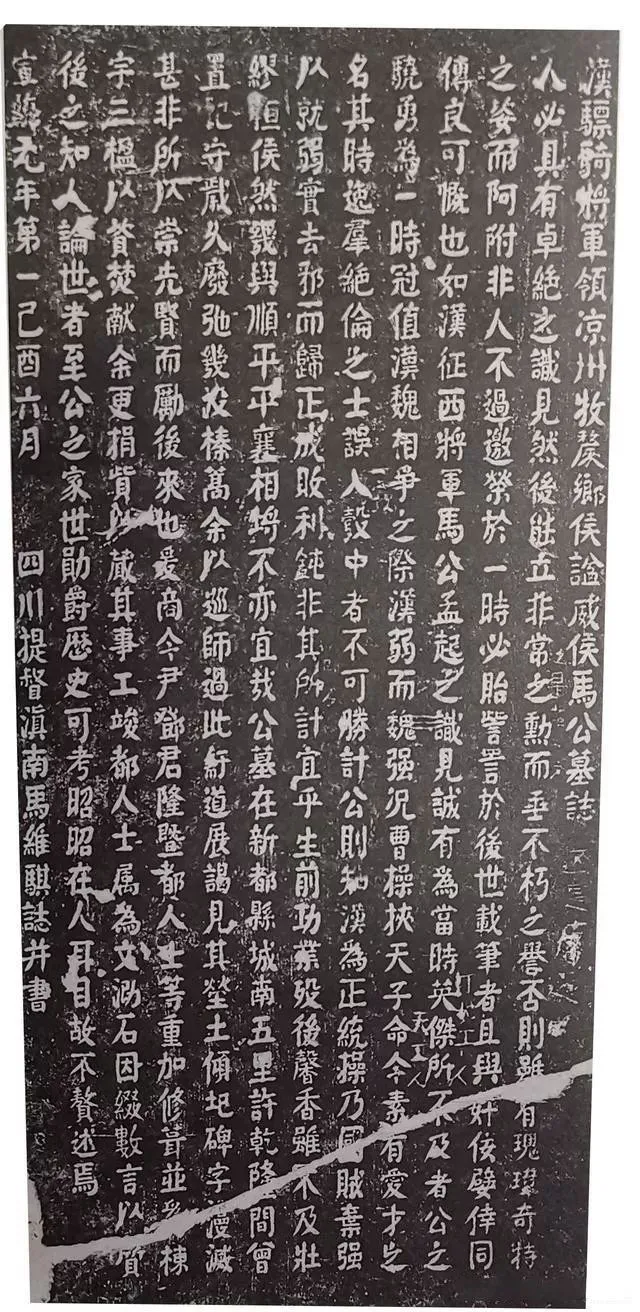 漢驃騎將軍領凉州牧斄鄉侯諡威侯馬公墓誌
人必具有卓絶之識見然後能立非常之勳而垂不朽之譽否則雖有瑰瑋奇特
之姿而阿附非人不過邀榮於一時必胎訾詈於後世載筆者且與奸佞嬖倖同
傳良可慨也如漢征西將軍馬公孟起之識見誠有為當時英傑所不及者公之
驍勇為一時冠值漢魏相爭之際漢弱而魏强况曹操挾天子命令素有愛才之
名其時逸羣絶倫之士誤入彀中者不可勝計公則知漢為正統操乃國賊棄强
以就弱實去邪而歸正成敗利鈍非其所計宜乎生前功業殁後馨香雖不及壯
繆恒侯然幾與順平平襄相埒不亦宜哉公墓在新都縣城南五里許乾隆間曾
置記守歲久廢弛幾没榛蕪余以巡師過此紆道展謁見其塋土傾圮碑字漫滅
甚非所以崇先賢而勵後來也爰商令尹鄧君隆暨都人士等重加修葺並築棟
宇三楹以薦焚献余更捐貲以蕆其事工竣都人士属為文泐石因綴數言以質
後之知人論世者至公之家世勛爵歷史可考昭昭在人耳目故不贅述焉
宣統元年第一己酉六月 四川提督滇南馬維騏誌并書